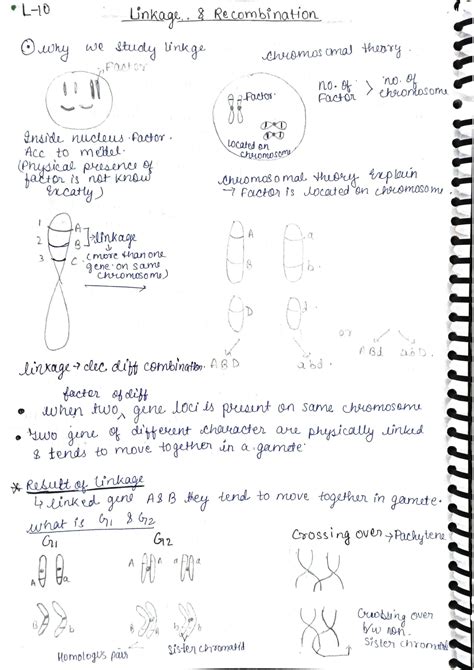 L-10
Linkage & Recombination
why we study linkge
chromosomal theory.
Factor
Factor
no. of Factor > no. of chromosome
located on chromosome
Inside nucleus Factor.
Acc to medel.
(Physical presence of
factor is not know
Excatly)
chromosomal theory Explain
→ Factor is located on chromosome.
1 A
2 B
3 C
linkage
(more than one
gene on same
chromosome)
A a
B b
D d
or
linkage → dec. diff combination. ABD abd. ABd abD.
factor of diff
when two gene loci is present on same chromosome
Two gene of different character are physically linked
& tends to move together in a gamete.
* Result of Linkage
↳ linked gene A&B they tend to move together in gamete.
what is G1 & G2
G1 G2
Crossing over → Pachytene
A a A a
Homologus pair
Sister chromatid
Crossing over
b/w non
Sister chromatid